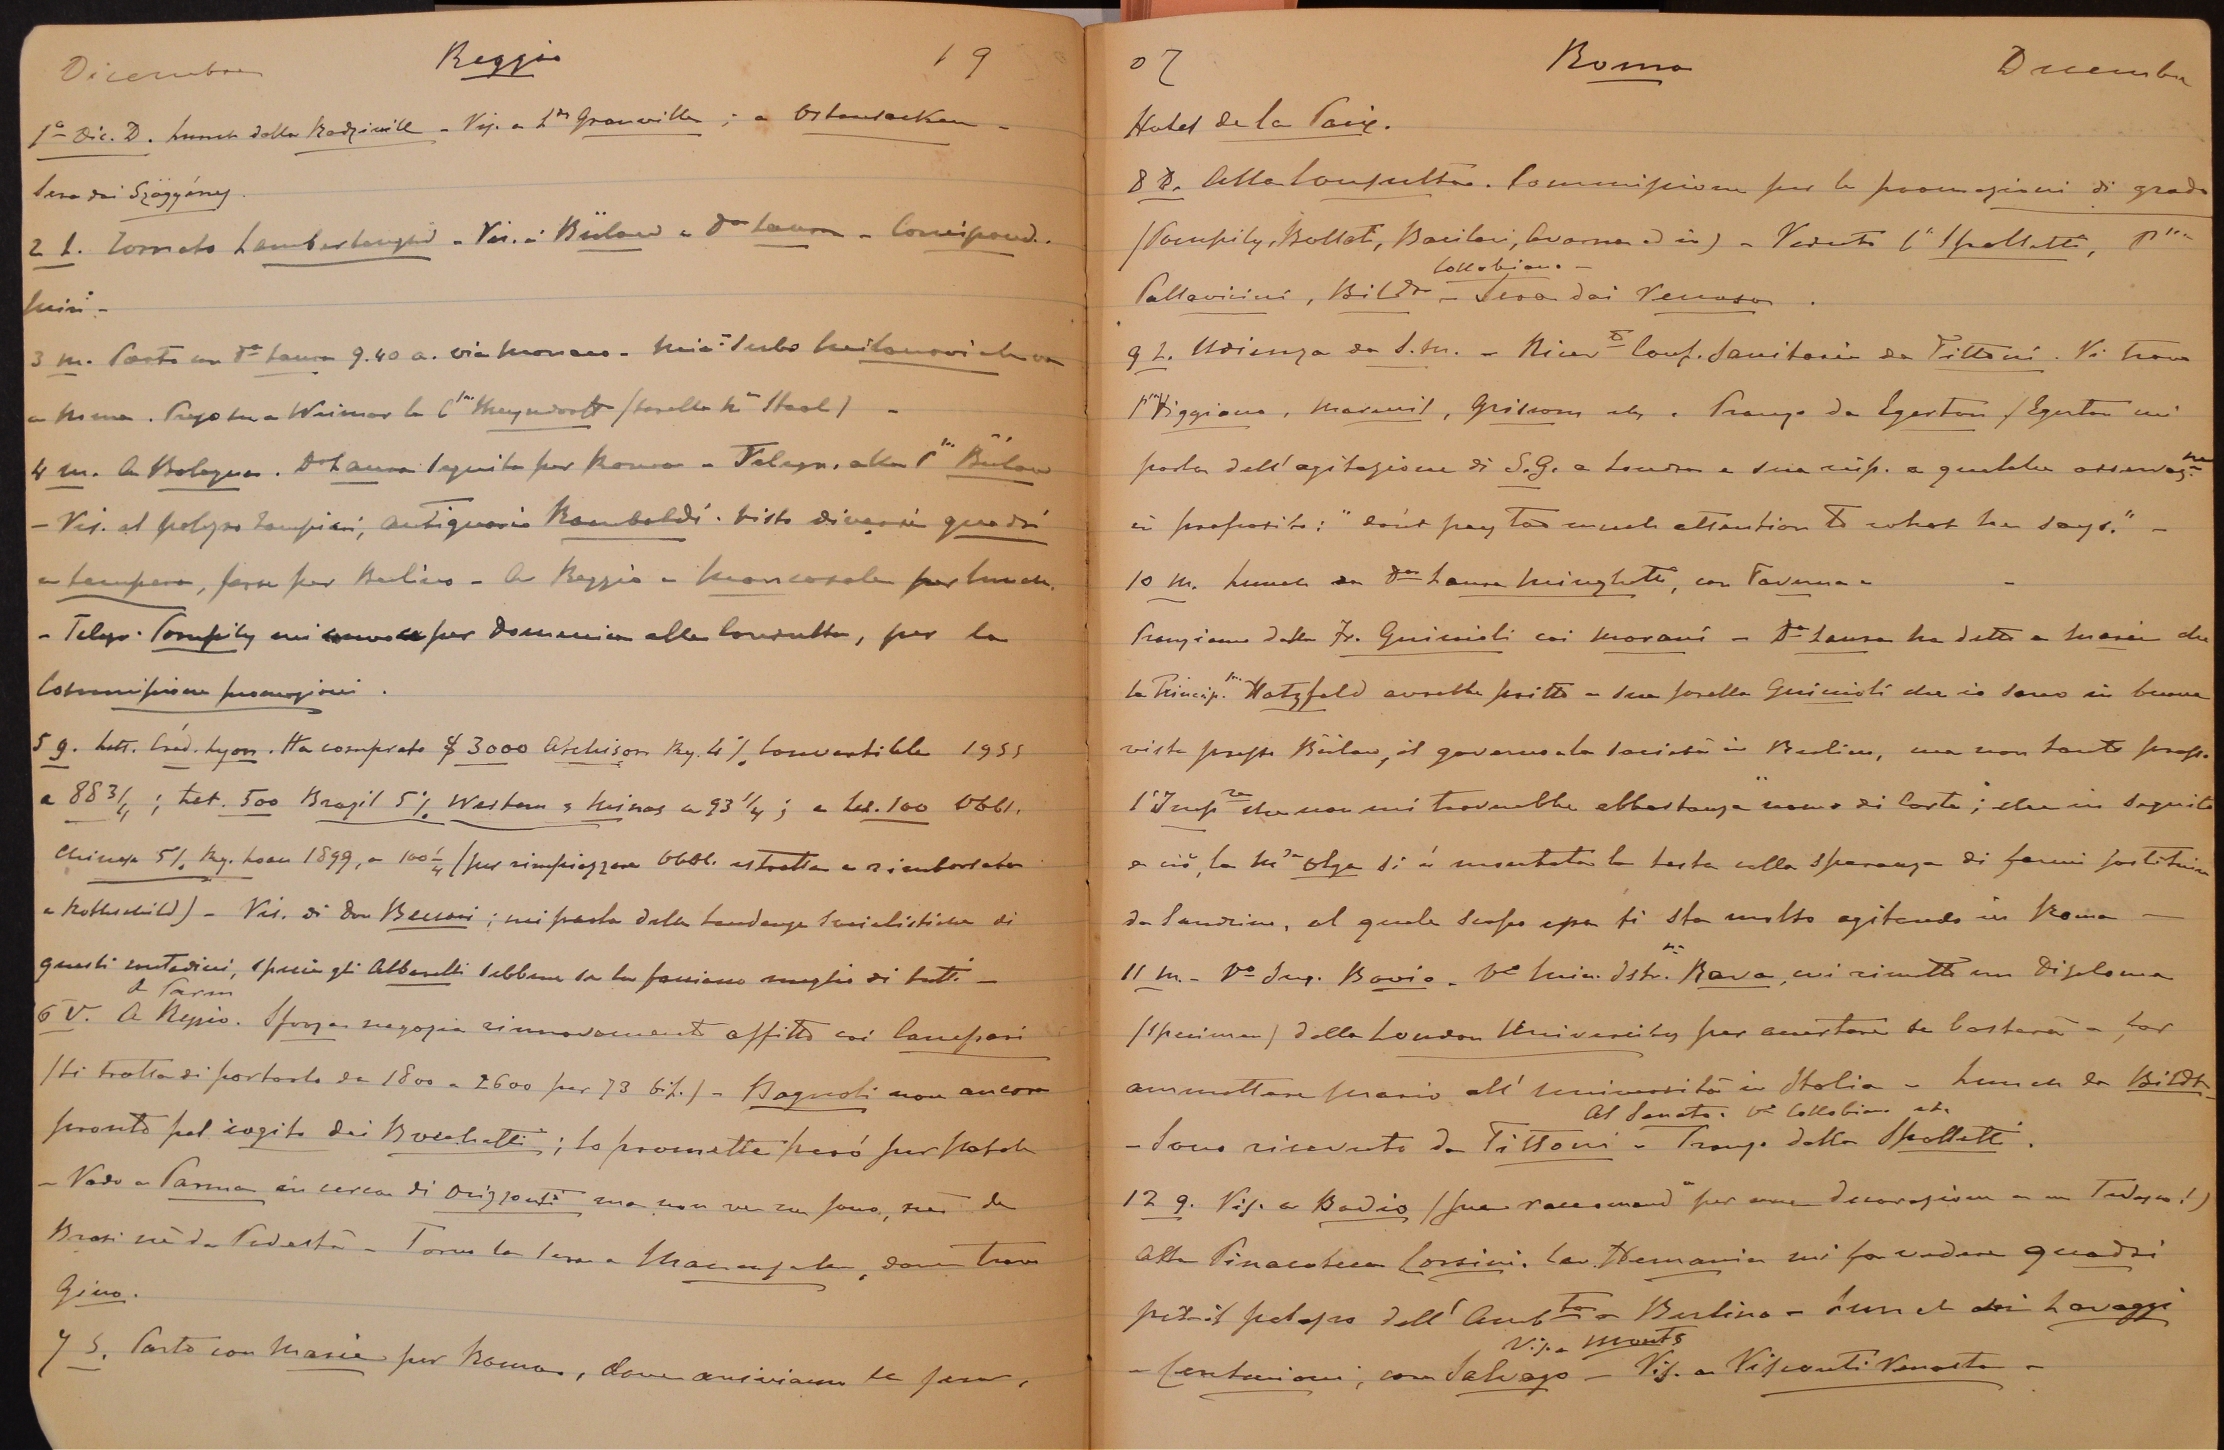 Dicembre Reggio 19
1º Dic. D. Lunch dalla Radziwill - Vis. a Lᵈʸ Granville ; a Ostensacken -
Sera dai Szögyény.
2 L. Tornato Lambertenghi - Vis. a Bülow e Dª Laura - Corrispond.
3 M. Parto con Dª Laura 9.40 a. via Monaco - Min. Serbo Milanovich va
a Roma. a Weimar la Cˢˢᵃ Meyendorff (sorella Mᵐᵉ Staal) -
4 M. A Bologna. Dª Laura seguita per Roma - Telegr. alla Pˢˢᵃ Bülow
- Vis. al palazzo Zampieri, antiquario Rambaldi. Visto diversi quadri
a tempera, forse per Berlino - A Reggio e Mancasale per lunch.
- Telegr. Pompily mi per Domenica alla Consulta, per la
Commissione promozioni.
5 g. Lett. Créd. Lyon. Ha comprato $ 3000 Atchison Ry. 4% Convertible 1955
a 88 3/4 ; Lst. 500 Brazil 5% Western of Minas a 93 1/4 ; e Lst. 100 Obbl.
Chinese 5% Ry. Loan 1899, a 100 1/4 (per rimpiazzare Obbl. estratta e rimborsata
a Rothschild) - Vis. di Don ; mi parla delle tendenze socialistiche di
questi contadini, specie gli Albarelli sebbene se la passino meglio di tutti -
e Parma
6 V. A Reggio. Sforza negozia rinnovamento affitto coi Campari
(si tratta di portarlo da 1800 a 2600 per 73 bif.) - Bagnoli non ancora
pronto pel rogito dei Boschetti ; lo promette però per Natale
- Vado a Parma in cerca di orizzonti ma non ve ne sono, nè da
Brasi nè da Podestà - Torno la sera a Mancasale, dove trovo
Gino.
7 S. Parto con Maria per Roma, dove arriviamo la sera,
07 Roma Dicembre
Hotel de la Paix.
8 D. Alla Consulta. Commissione per le promozioni di grado
(Pompily, Bollati, Barilari, Avarna ed io) - Veduto Cˢˢᵃ Spalletti, Pˢˢᵃ
Collobiano -
Pallavicini, Bildt - Sera dai Venosa.
9 L. Udienza da S.M. - Ricev.º Conf. Sanitaria da Tittoni. Vi trovo
Pᵖᵉ Viggiano, Griscom etc. Pranzo da Egerton (Egerton mi
parla dell'agitazione di S.G. a Londra e sua risp. a qualche osservaz.ⁿᵉ
in proposito: "don't pay too much attention to what he says." -
10 M. Lunch da Dª Laura Minghetti, con Taverna -
Pranziamo dalla Fr. Guiccioli coi Morani - Dª Laura ha detto a Maria che
la Princip.ˢˢᵃ Hatzfeld avrebbe scritto a sua sorella Guiccioli che io sono in buona
vista presso Bülow, il governo e la società in Berlino, ma non tanto presso
l'Imp.ʳᵉ che non mi troverebbe abbastanza "uomo di Corte"; che in seguito
a ciò, la Mˢᵃ Olga si è montata la testa colla speranza di farmi sostituire
da Sandrino, al quale scopo essa si sta molto agitando in Roma -
11 M. - Vº Ing. Bovio. Vº Min. Istr.ⁿᵉ Rava, cui rimetto un Diploma
(specimen) della London University per accertare se basterà a far
ammettere Mario all'università in Italia - Lunch da Bildt -
Al Senato. Vº Collobiano etc.
- Sono ricevuto da Tittoni - Pranzo dalla Spalletti.
12 g. Vis. a Bodio (sua raccomand.ⁿᵉ per una decorazione a un Tedesco!)
Alla Pinacoteca Corsini. Cav. Hermanin mi fa vedere quadri
pel palazzo dell'Amb.ᵗᵃ a Berlino - Lunch dai Lavaggi
Vis. a Monts
- Centurioni, con Salvago - Vis. a Visconti Venosta -